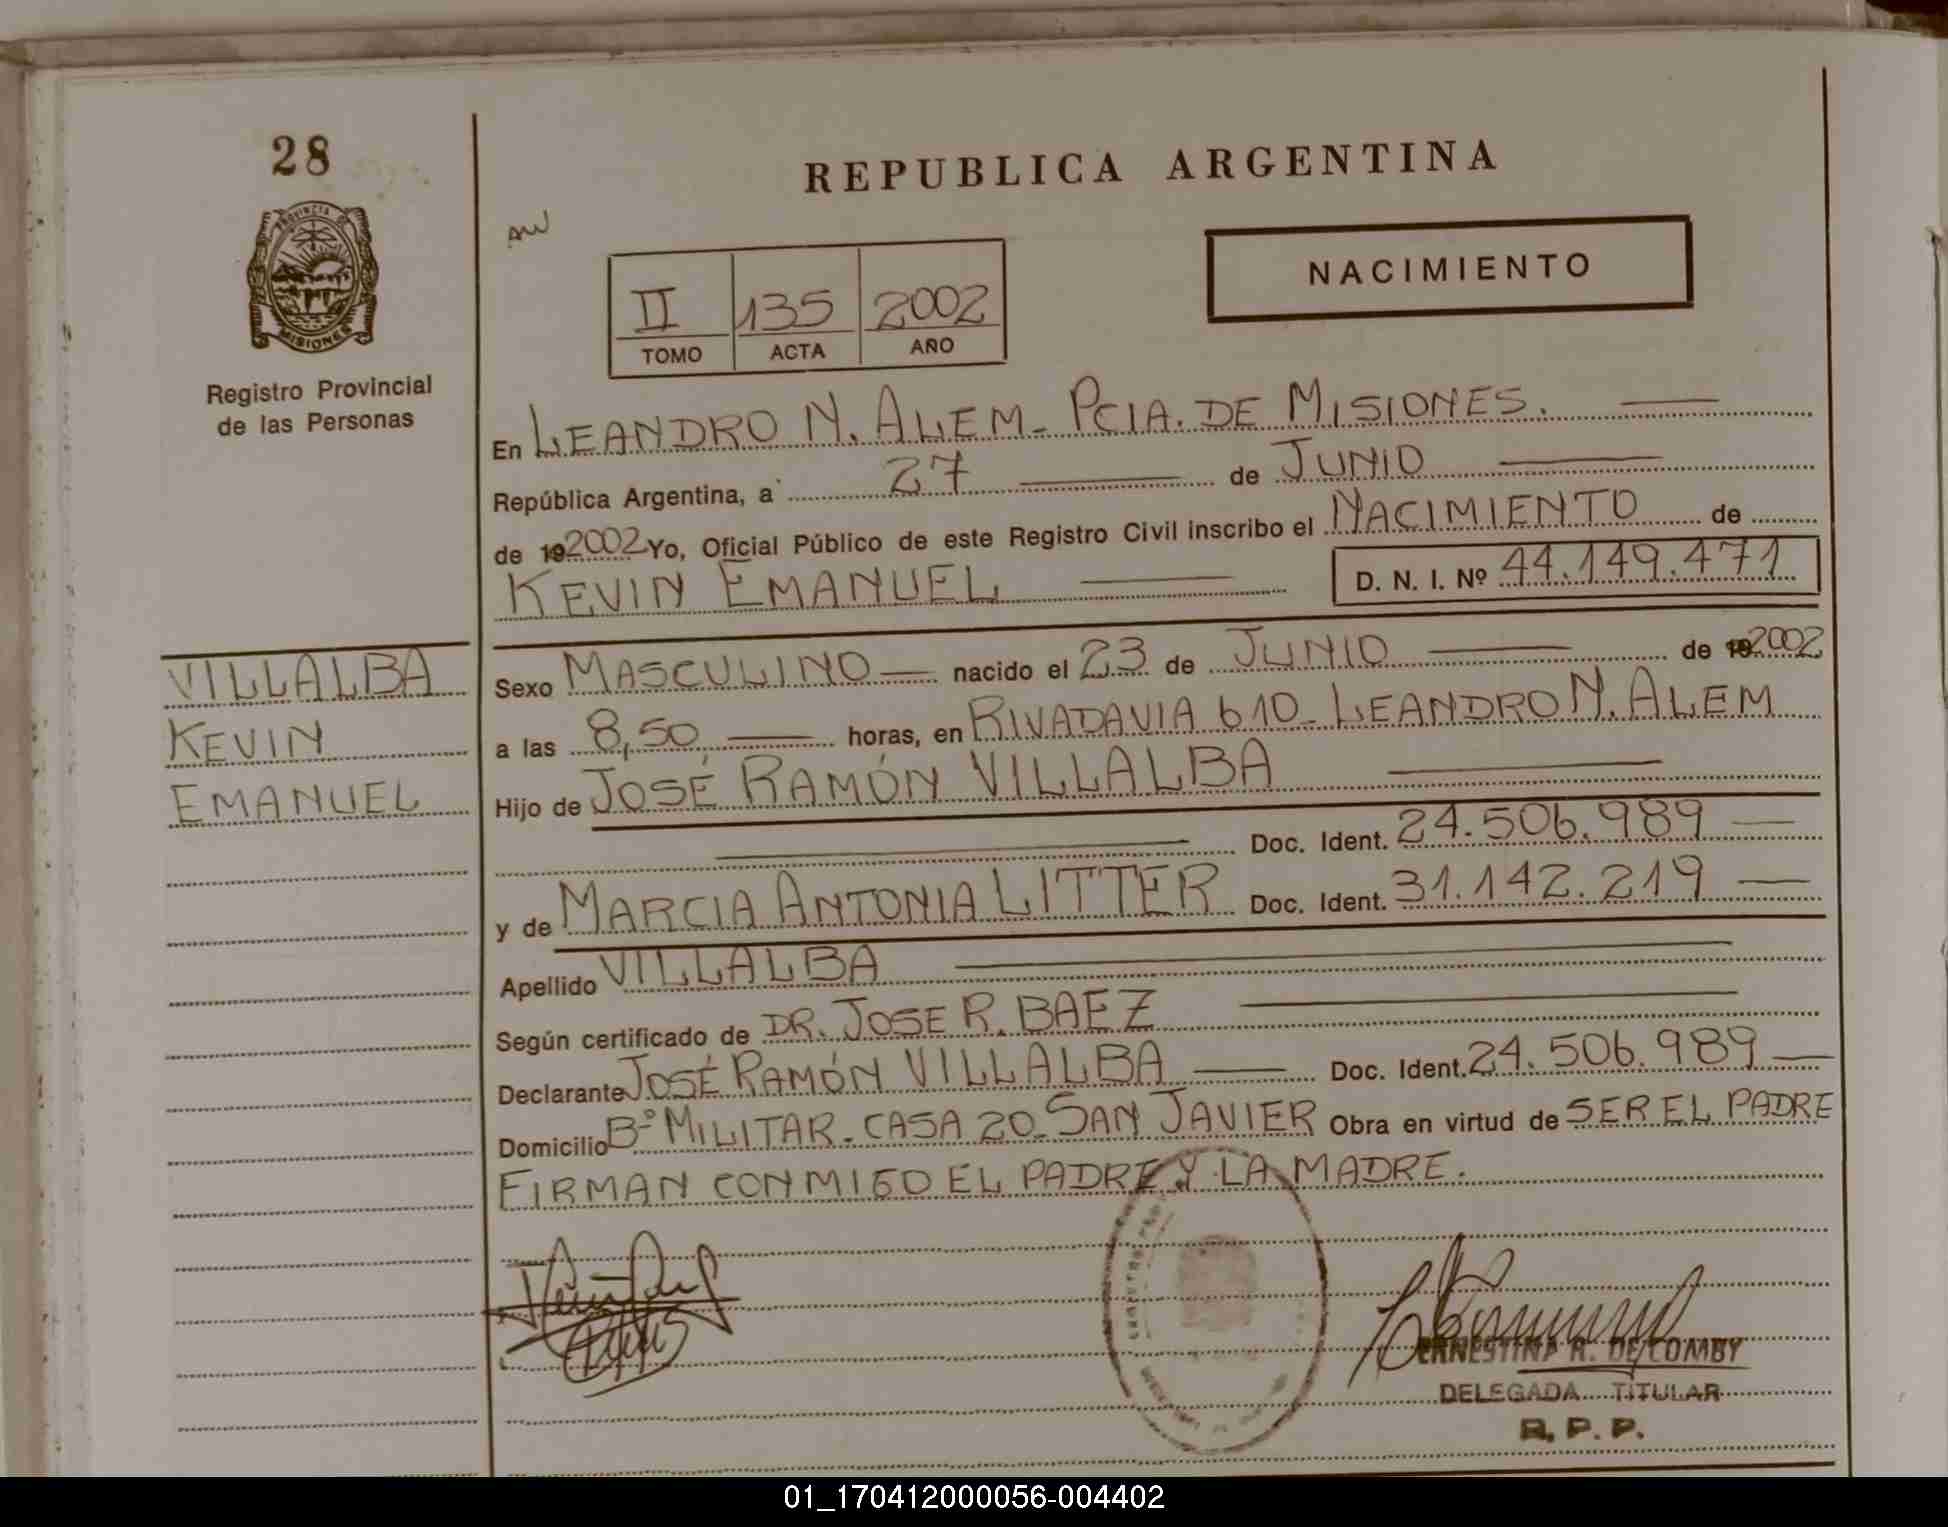 28
PROVINCIA DE
MISIONES
Registro Provincial
de las Personas
VILLALBA
KEVIN
EMANUEL
REPUBLICA ARGENTINA
NACIMIENTO
II 135 2002
TOMO ACTA AÑO
En LEANDRO N. ALEM - PCIA. DE MISIONES.
República Argentina, a 27 de JUNIO
de 192002 Yo, Oficial Público de este Registro Civil inscribo el NACIMIENTO de
KEVIN EMANUEL D. N. I. Nº 44.149.471
Sexo MASCULINO nacido el 23 de JUNIO de 192002
a las 8,50 horas, en RIVADAVIA 610 - LEANDRO N. ALEM
Hijo de JOSÉ RAMÓN VILLALBA
Doc. Ident. 24.506.989
y de MARCIA ANTONIA LITTER Doc. Ident. 31.142.219
Apellido VILLALBA
Según certificado de DR. JOSE R. BAEZ
Declarante JOSÉ RAMÓN VILLALBA Doc. Ident. 24.506.989
Domicilio Bº MILITAR - CASA 20 - SAN JAVIER Obra en virtud de SER EL PADRE
FIRMAN CONMIGO EL PADRE Y LA MADRE.
ERNESTINA R. DE COMBY
DELEGADA TITULAR
R. P. P.
01_170412000056-004402